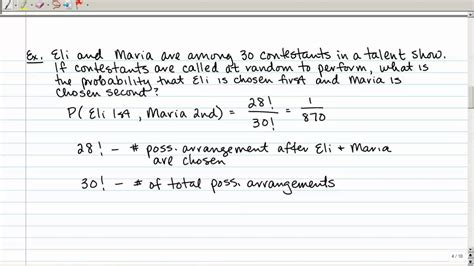 Ex. Eli and Maria are among 30 contestants in a talent show.
If contestants are called at random to perform, what is
the probability that Eli is chosen first and Maria is
chosen second?
P( Eli 1st , Maria 2nd ) = 28! / 30! = 1 / 870
28! - # poss. arrangement after Eli + Maria
are chosen
30! - # of total poss. arrangements
4 / 10